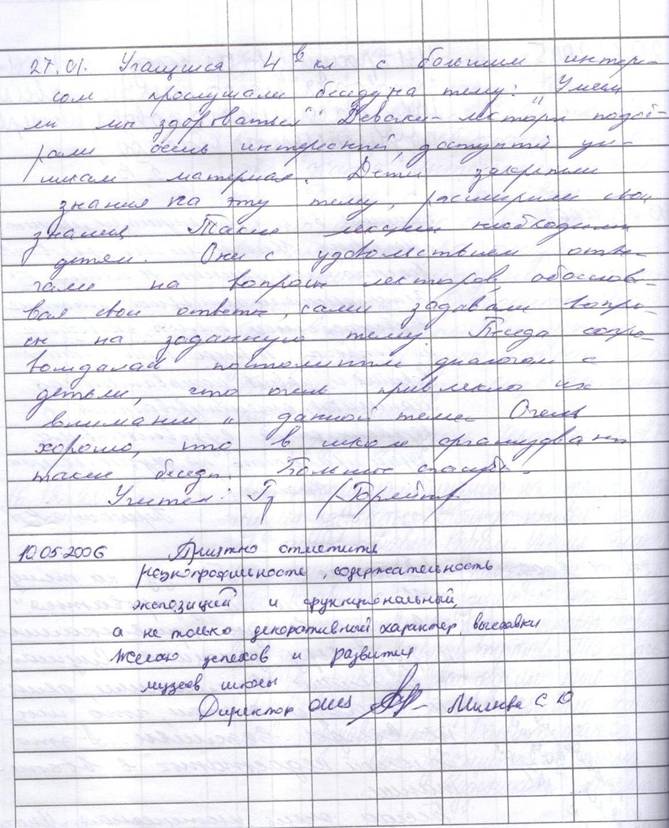 27.01. Учащиеся 4 в кл с большим интере-
сом прослушали беседу на тему: "Умеем
ли мы здороваться". Девочки-лекторы подоб-
рали очень интересный, доступный уче-
никам материал. Дети закрепили
знания на эту тему, расширили свои
знания. Такие лекции необходимы
детям. Они с удовольствием отве-
чали на вопросы лекторов, обосновы-
вая свои ответы, сами задавали вопро-
сы на заданную тему. Беседа сопро-
вождалась диалогом с
детьми, что очень привлекло их
внимание к данной теме. Очень
хорошо, что в школе организованы
такие беседы. Большое спасибо.
Учитель:
10.05.2006 Приятно отметить
разнопрофильность, содержательность
экспозиций и функциональный,
а не только декоративный характер выставки
Желаю успехов и развития
музею школы
Директор С Ю